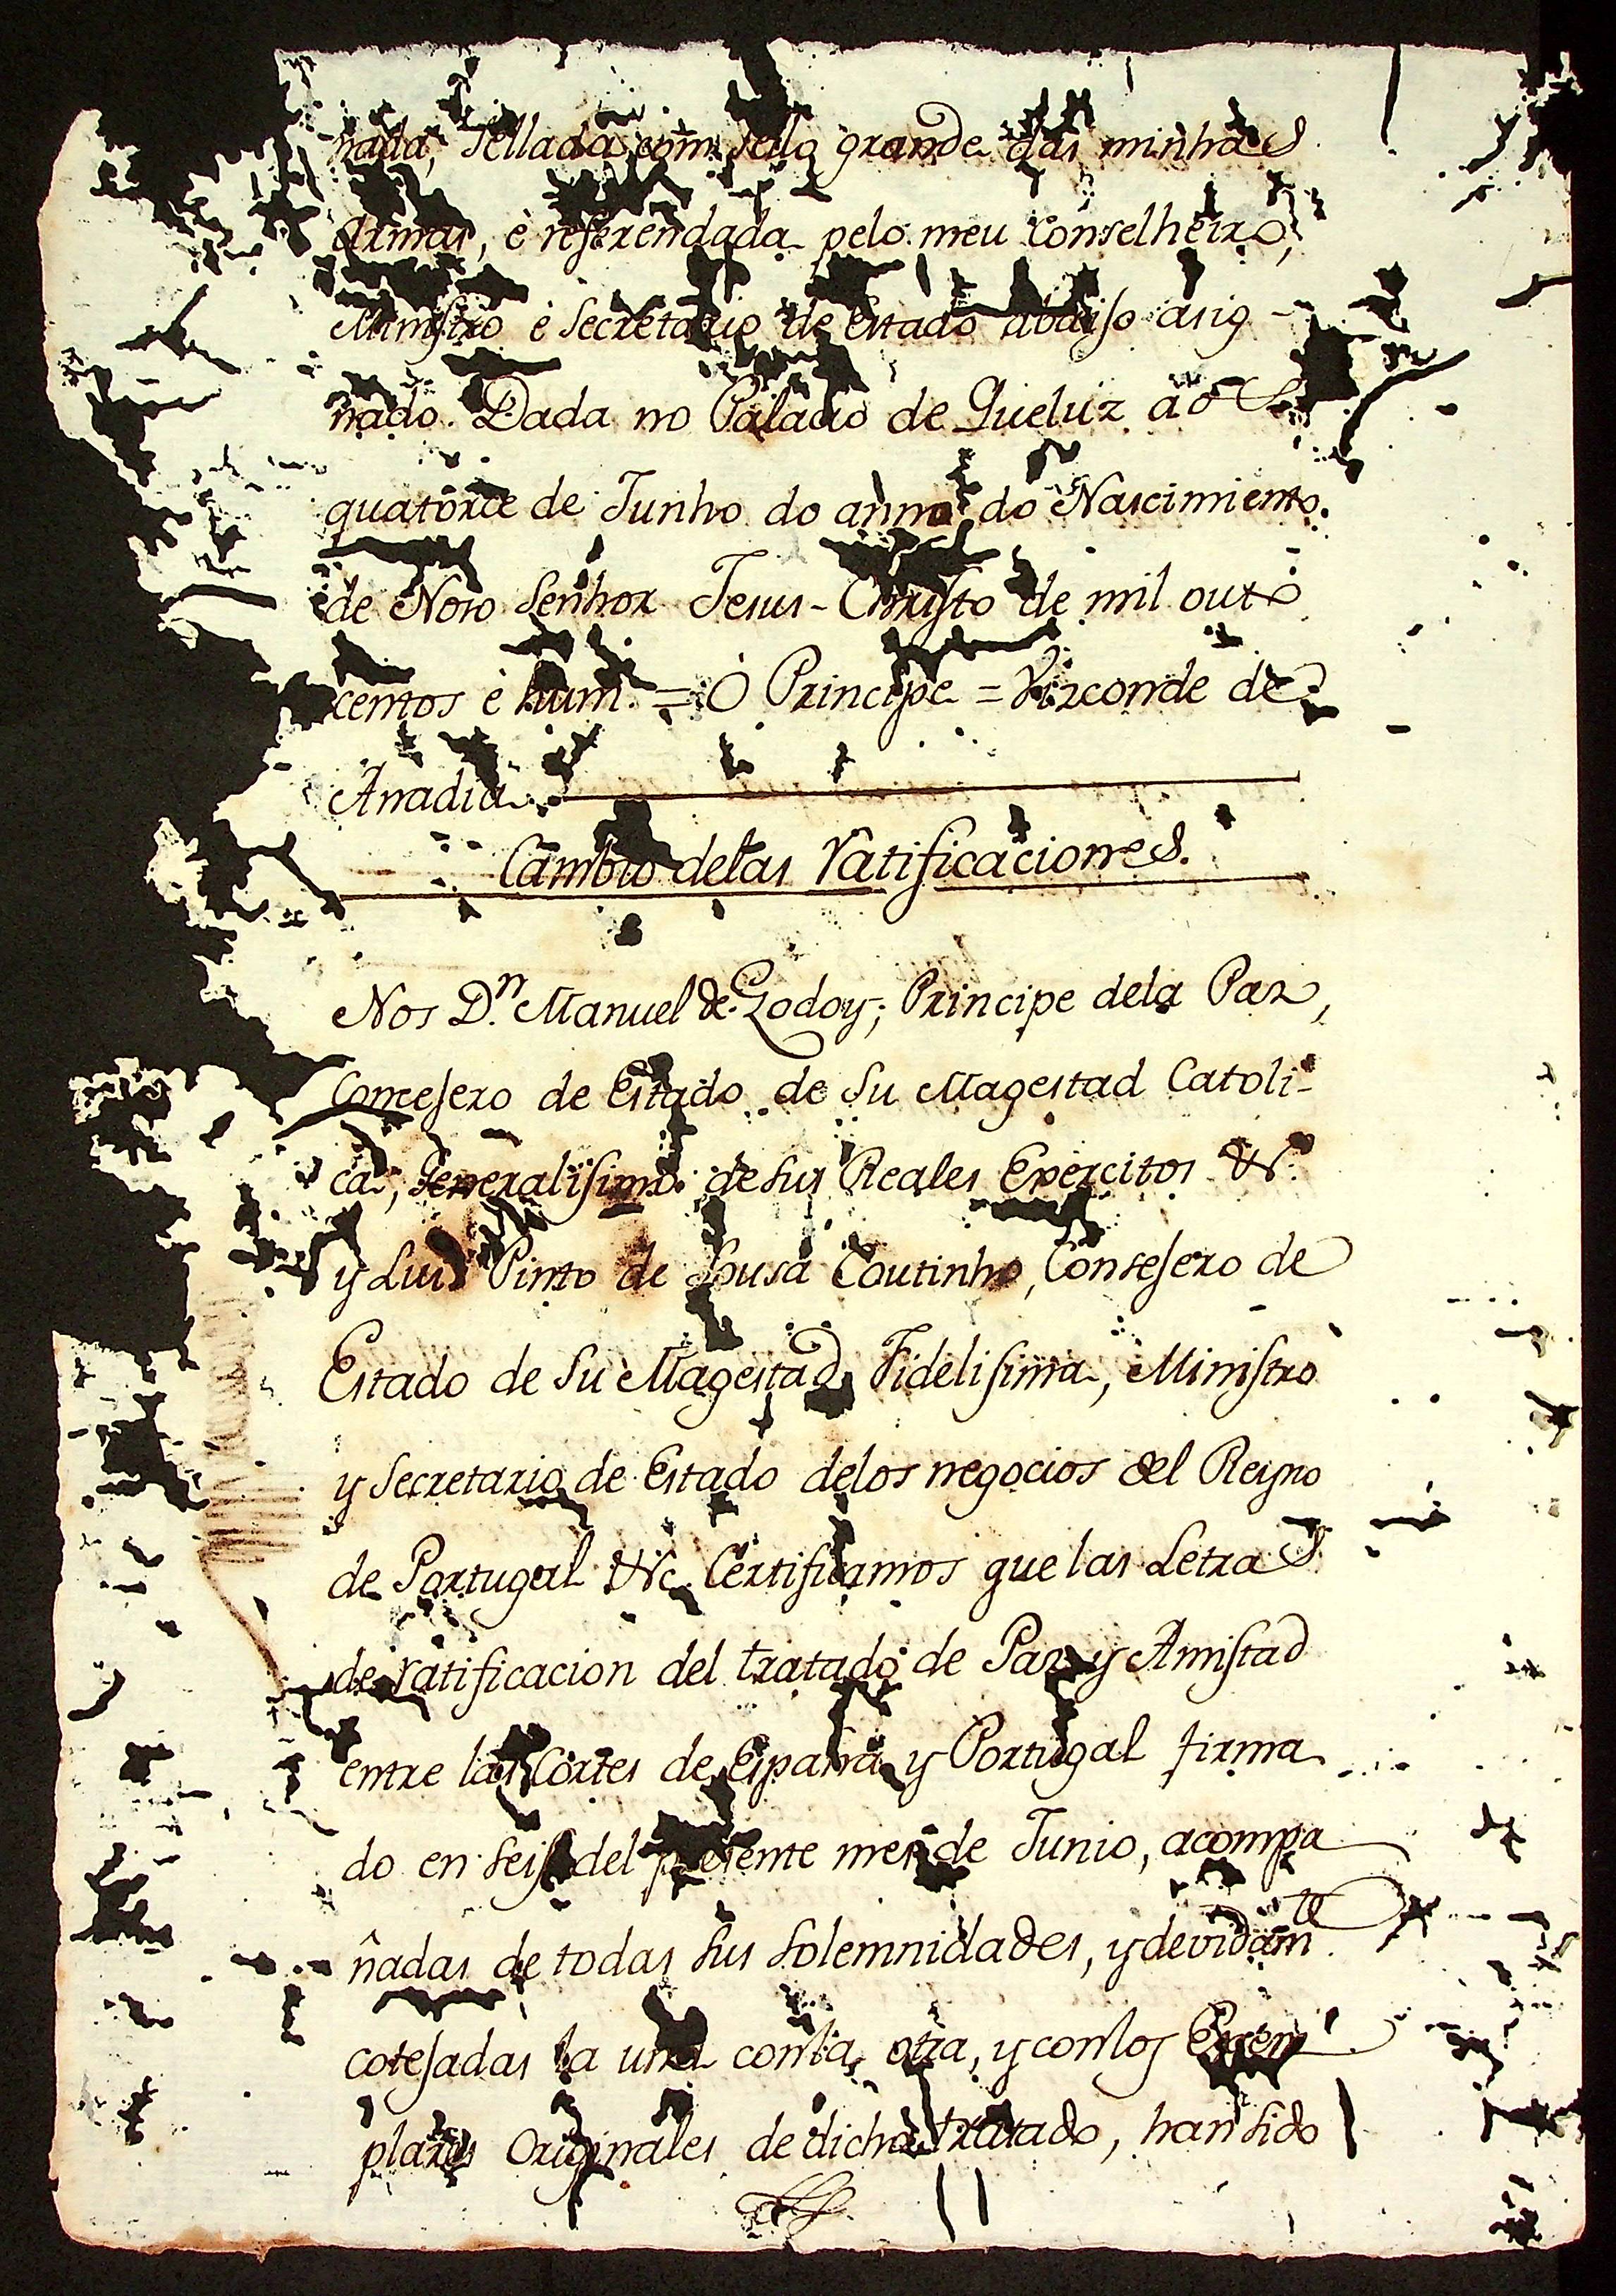 nada, Sellada com selo grande das minhas
Armas, è referendada pelo meu Conselheiro,
Ministro è Secretario de Estado abaiso asig-
nado. Dada no Palacio de Queluz aos
quatorce de Junho do anno do Nascimiento
de Noso Senhor Jesus-Christo de mil outo
centos è hum. = O Principe = Vizconde de
Anadia.
Cambio delas ratificaciones.
Nos D.n Manuel de Godoy, Principe dela Paz,
Consejero de Estado de Su Magestad Catoli-
ca, Generalisimo de sus Reales Exercitos &c.
y Luis Pinto de Sousa Coutinho, Consejero de
Estado de Su Magestad Fidelisima, Ministro
y Secretario de Estado delos negocios del Reyno
de Portugal &c. Certificamos que las Letras
de ratificacion del tratado de Paz y Amistad
entre las Cortes de España y Portugal firma
do en seis del presente mes de Junio, acompa
ñadas de todas sus Solemnidades, y devidam.te
cotejadas la una con la otra, y con los Exem
plares Originales de dicho tratado, han sido